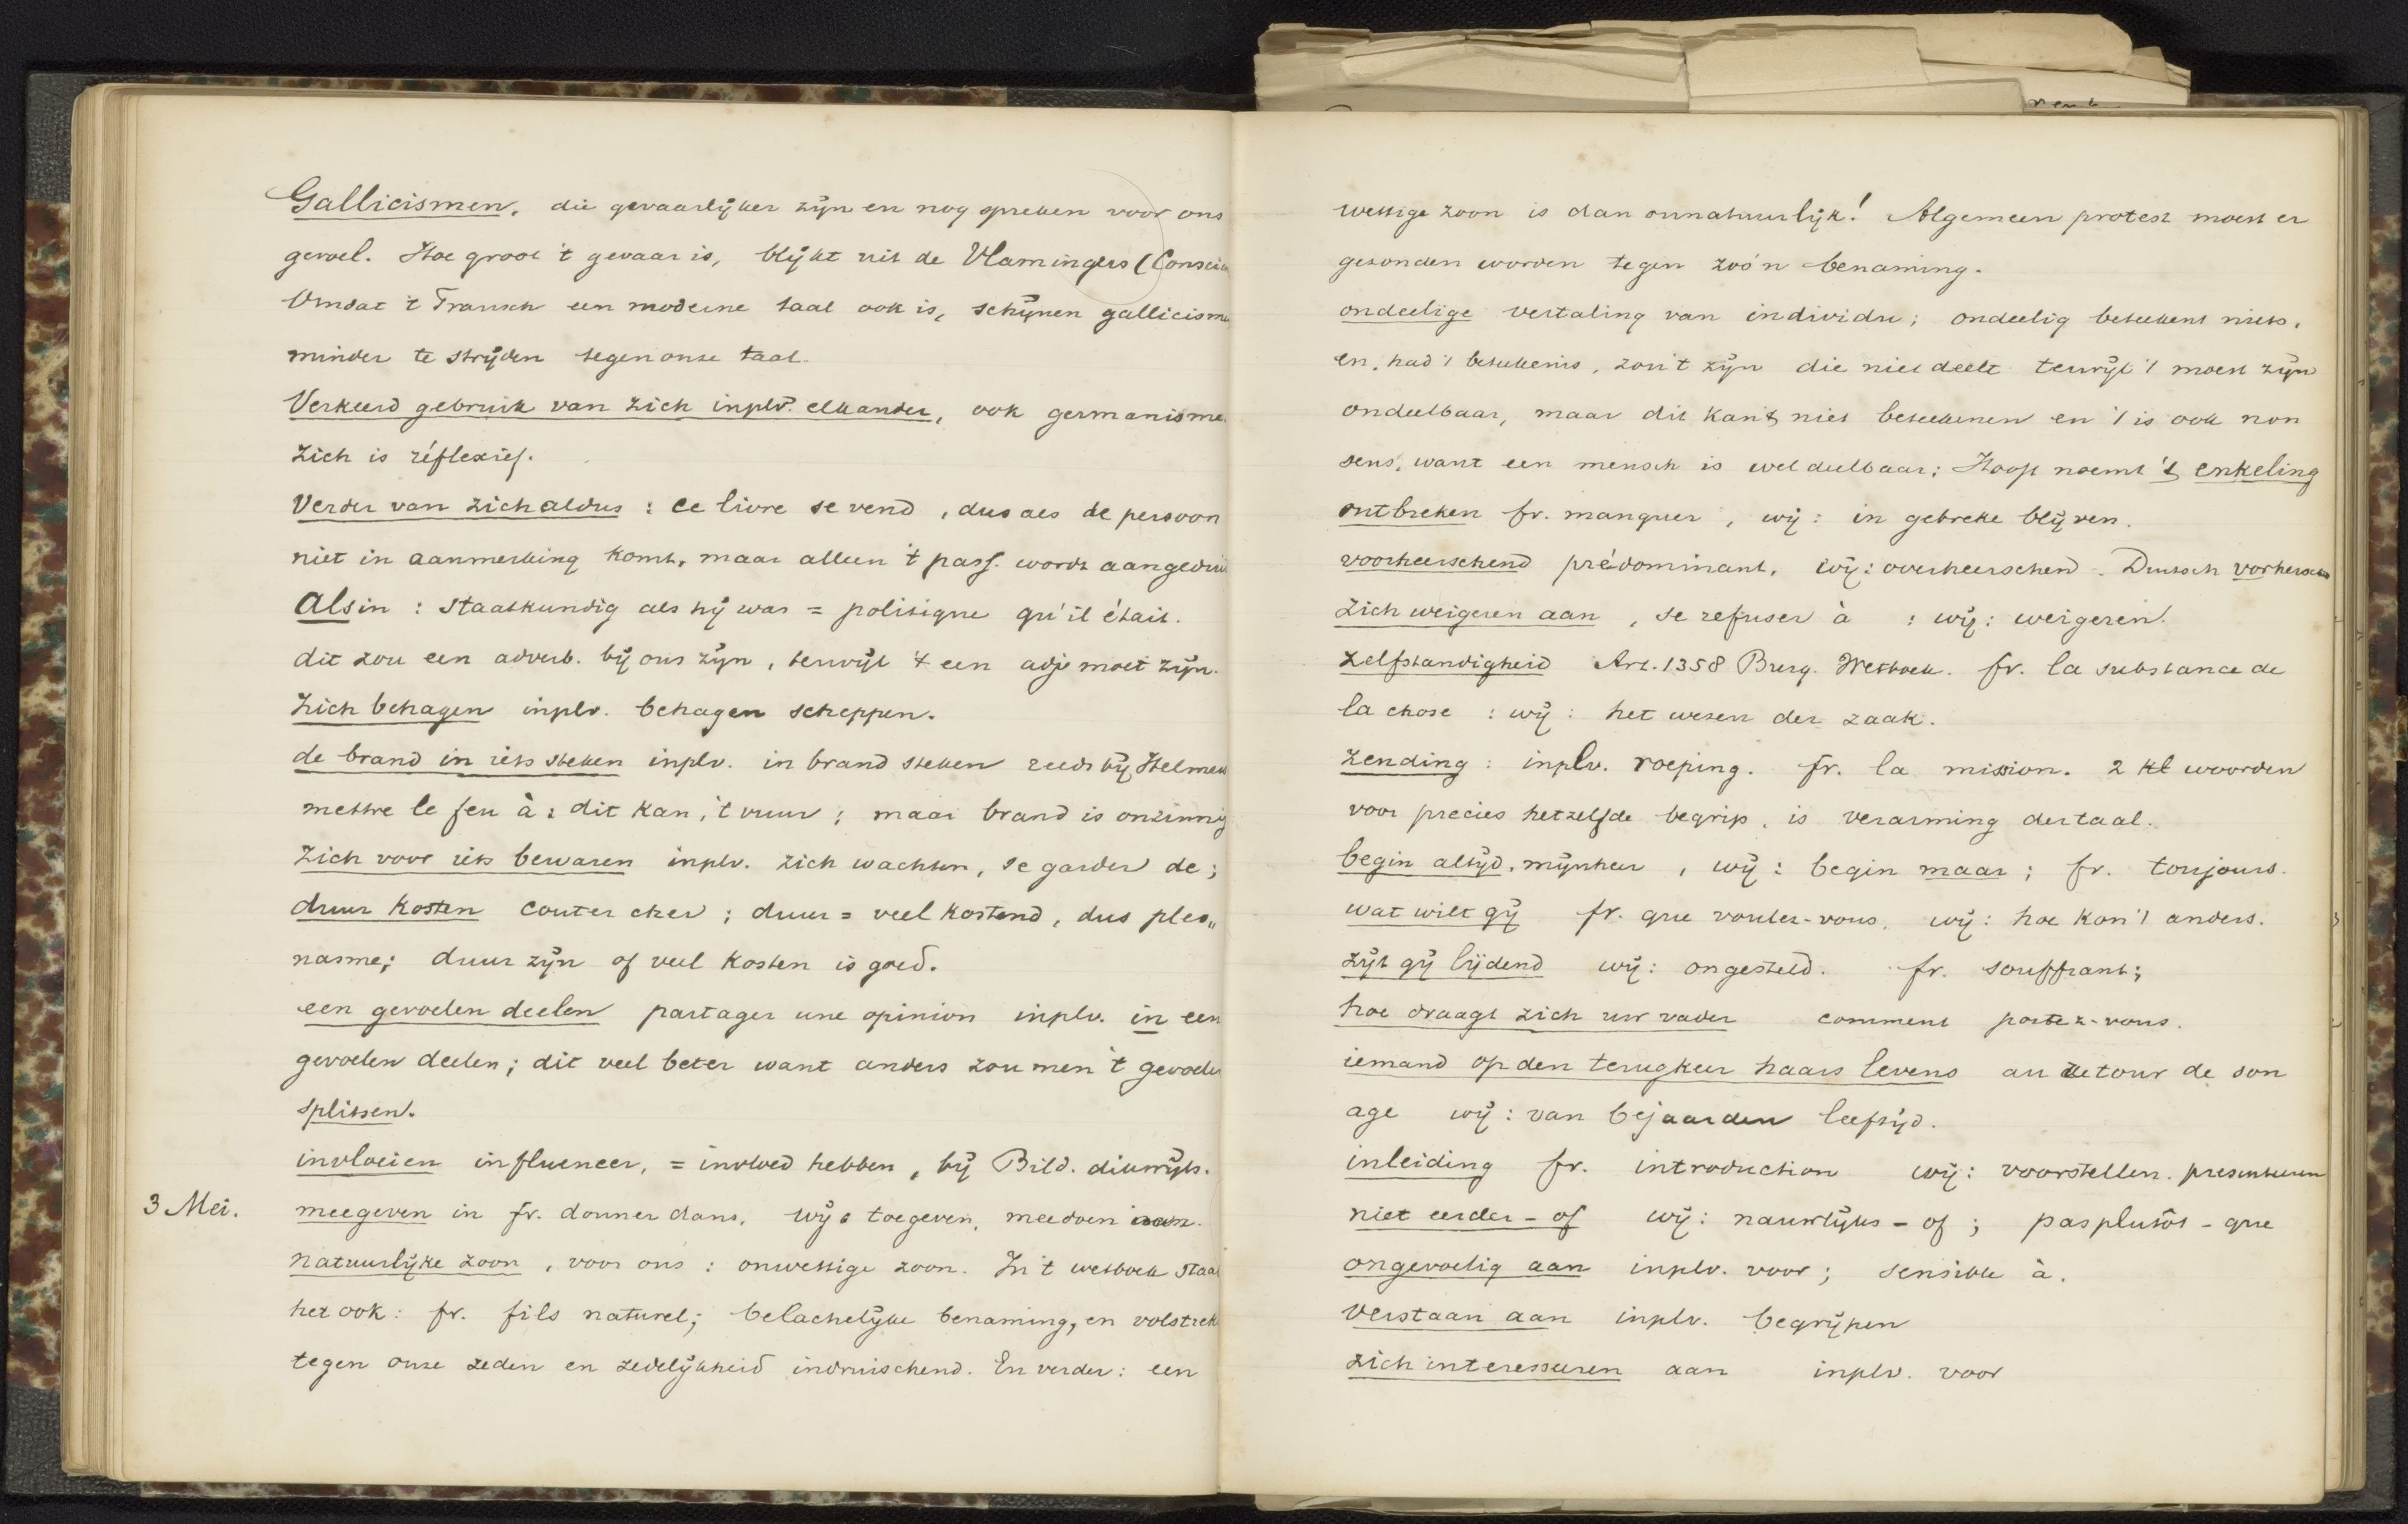 Gallicismen, die gevaarlijker zijn en nog spreken voor ons
gevoel. Hoe groot 't gevaar is, blijkt uit de Vlamingers (Conscien
Omdat 't Fransch een moderne taal ook is, schijnen gallicisme
minder te strijden tegen onze taal.
Verkeerd gebruik van zich inplv. elkander, ook germanisme.
Zich is réflexief.
Verder van zich aldus : ce livre se vend, dus als de persoon
niet in aanmerking komt, maar alleen 't pass. wordt aangedui
Als in : staatkundig als hij was = politique qu'il était.
dit zou een adverb. bij ons zijn, terwijl 't een adj. moet zijn.
Zich behagen inplv. behagen scheppen.
de brand in iets steken inplv. in brand steken reeds bij Helmer
mettre le feu à : dit kan, 't vuur ; maar brand is onzinnig
Zich voor iets bewaren inplv. zich wachten, se garder de ;
duur kosten couter cher ; duur = veel kostend, dus pleo„
nasme; duur zijn of veel kosten is goed.
een gevoelen deelen partager une opinion inplv. in een
gevoelen deelen; dit veel beter want anders zou men 't gevoele
splitsen.
invloeien influencer, = invloed hebben, bij Bild. dikwijls.
3 Mei. meegeven in fr. donner dans, wij : toegeven, meedoen aan.
natuurlijke zoon, voor ons : onwettige zoon. In 't wetboek staat
het ook : fr. fils naturel; belachelijke benaming, en volstrekt
tegen onze zeden en zedelijkheid indruischend. En verder : een
wettige zoon is dan onnatuurlijk! Algemeen protest moest er
gezonden worden tegen zoo'n benaming.
ondeelige vertaling van individu; ondeelig beteekent niets,
en, had 't beteekenis, zou 't zijn die niet deelt terwijl 't moest zijn
ondeelbaar, maar dit kan 't niet beteekenen en 't is ook non
sens, want een mensch is wel deelbaar; Hooft noemt 't enkeling
ontbreken fr. manquer, wij : in gebreke blijven.
voorheerschend prédominant, wij : overheerschend. Duitsch vorherschen
Zich weigeren aan, se refuser à : wij : weigeren.
Zelfstandigheid Art. 1358 Burg. Wetboek. fr. la substance de
la chose : wij : het wezen der zaak.
Zending : inplv. roeping. fr. la mission. 2 kl woorden
voor precies hetzelfde begrip, is verarming der taal.
begin altijd, mijnheer, wij : begin maar ; fr. toujours.
wat wilt gij fr. que voulez-vous, wij : hoe kon 't anders.
zijt gij lijdend wij : ongesteld. fr. souffrant;
hoe draagt zich uw vader comment portez-vous.
iemand op den terugkeer haars levens au retour de son
age wij : van bejaarden leeftijd.
inleiding fr. introduction wij : voorstellen. presenteeren
niet eerder - of wij : nauwlijks - of ; pas plutôt - que
ongevoelig aan inplv. voor ; sensible à.
verstaan aan inplv. begrijpen
zich interesseeren aan inplv. voor